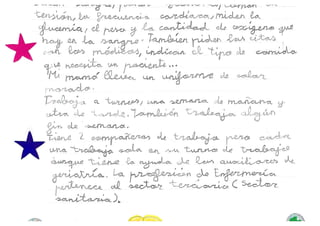 tensión, la frecuencia cardíaca, miden la
glucemia, el peso y la cantidad de oxígeno que
hay en la sangre. También piden las citas
con los médicos, indican el tipo de comida
que necesita un paciente...
Mi mamá lleva un uniforme de color
morado.
Trabaja a turnos, una semana de mañana y
otra de tarde. También trabaja algún
fin de semana.
Tiene 2 compañeras de trabajo pero cada
una trabaja sola en su turno de trabajo
aunque tiene la ayuda de los auxiliares de
geriatría. La profesión de Enfermería
pertenece al sector terciario (sector
sanitario).